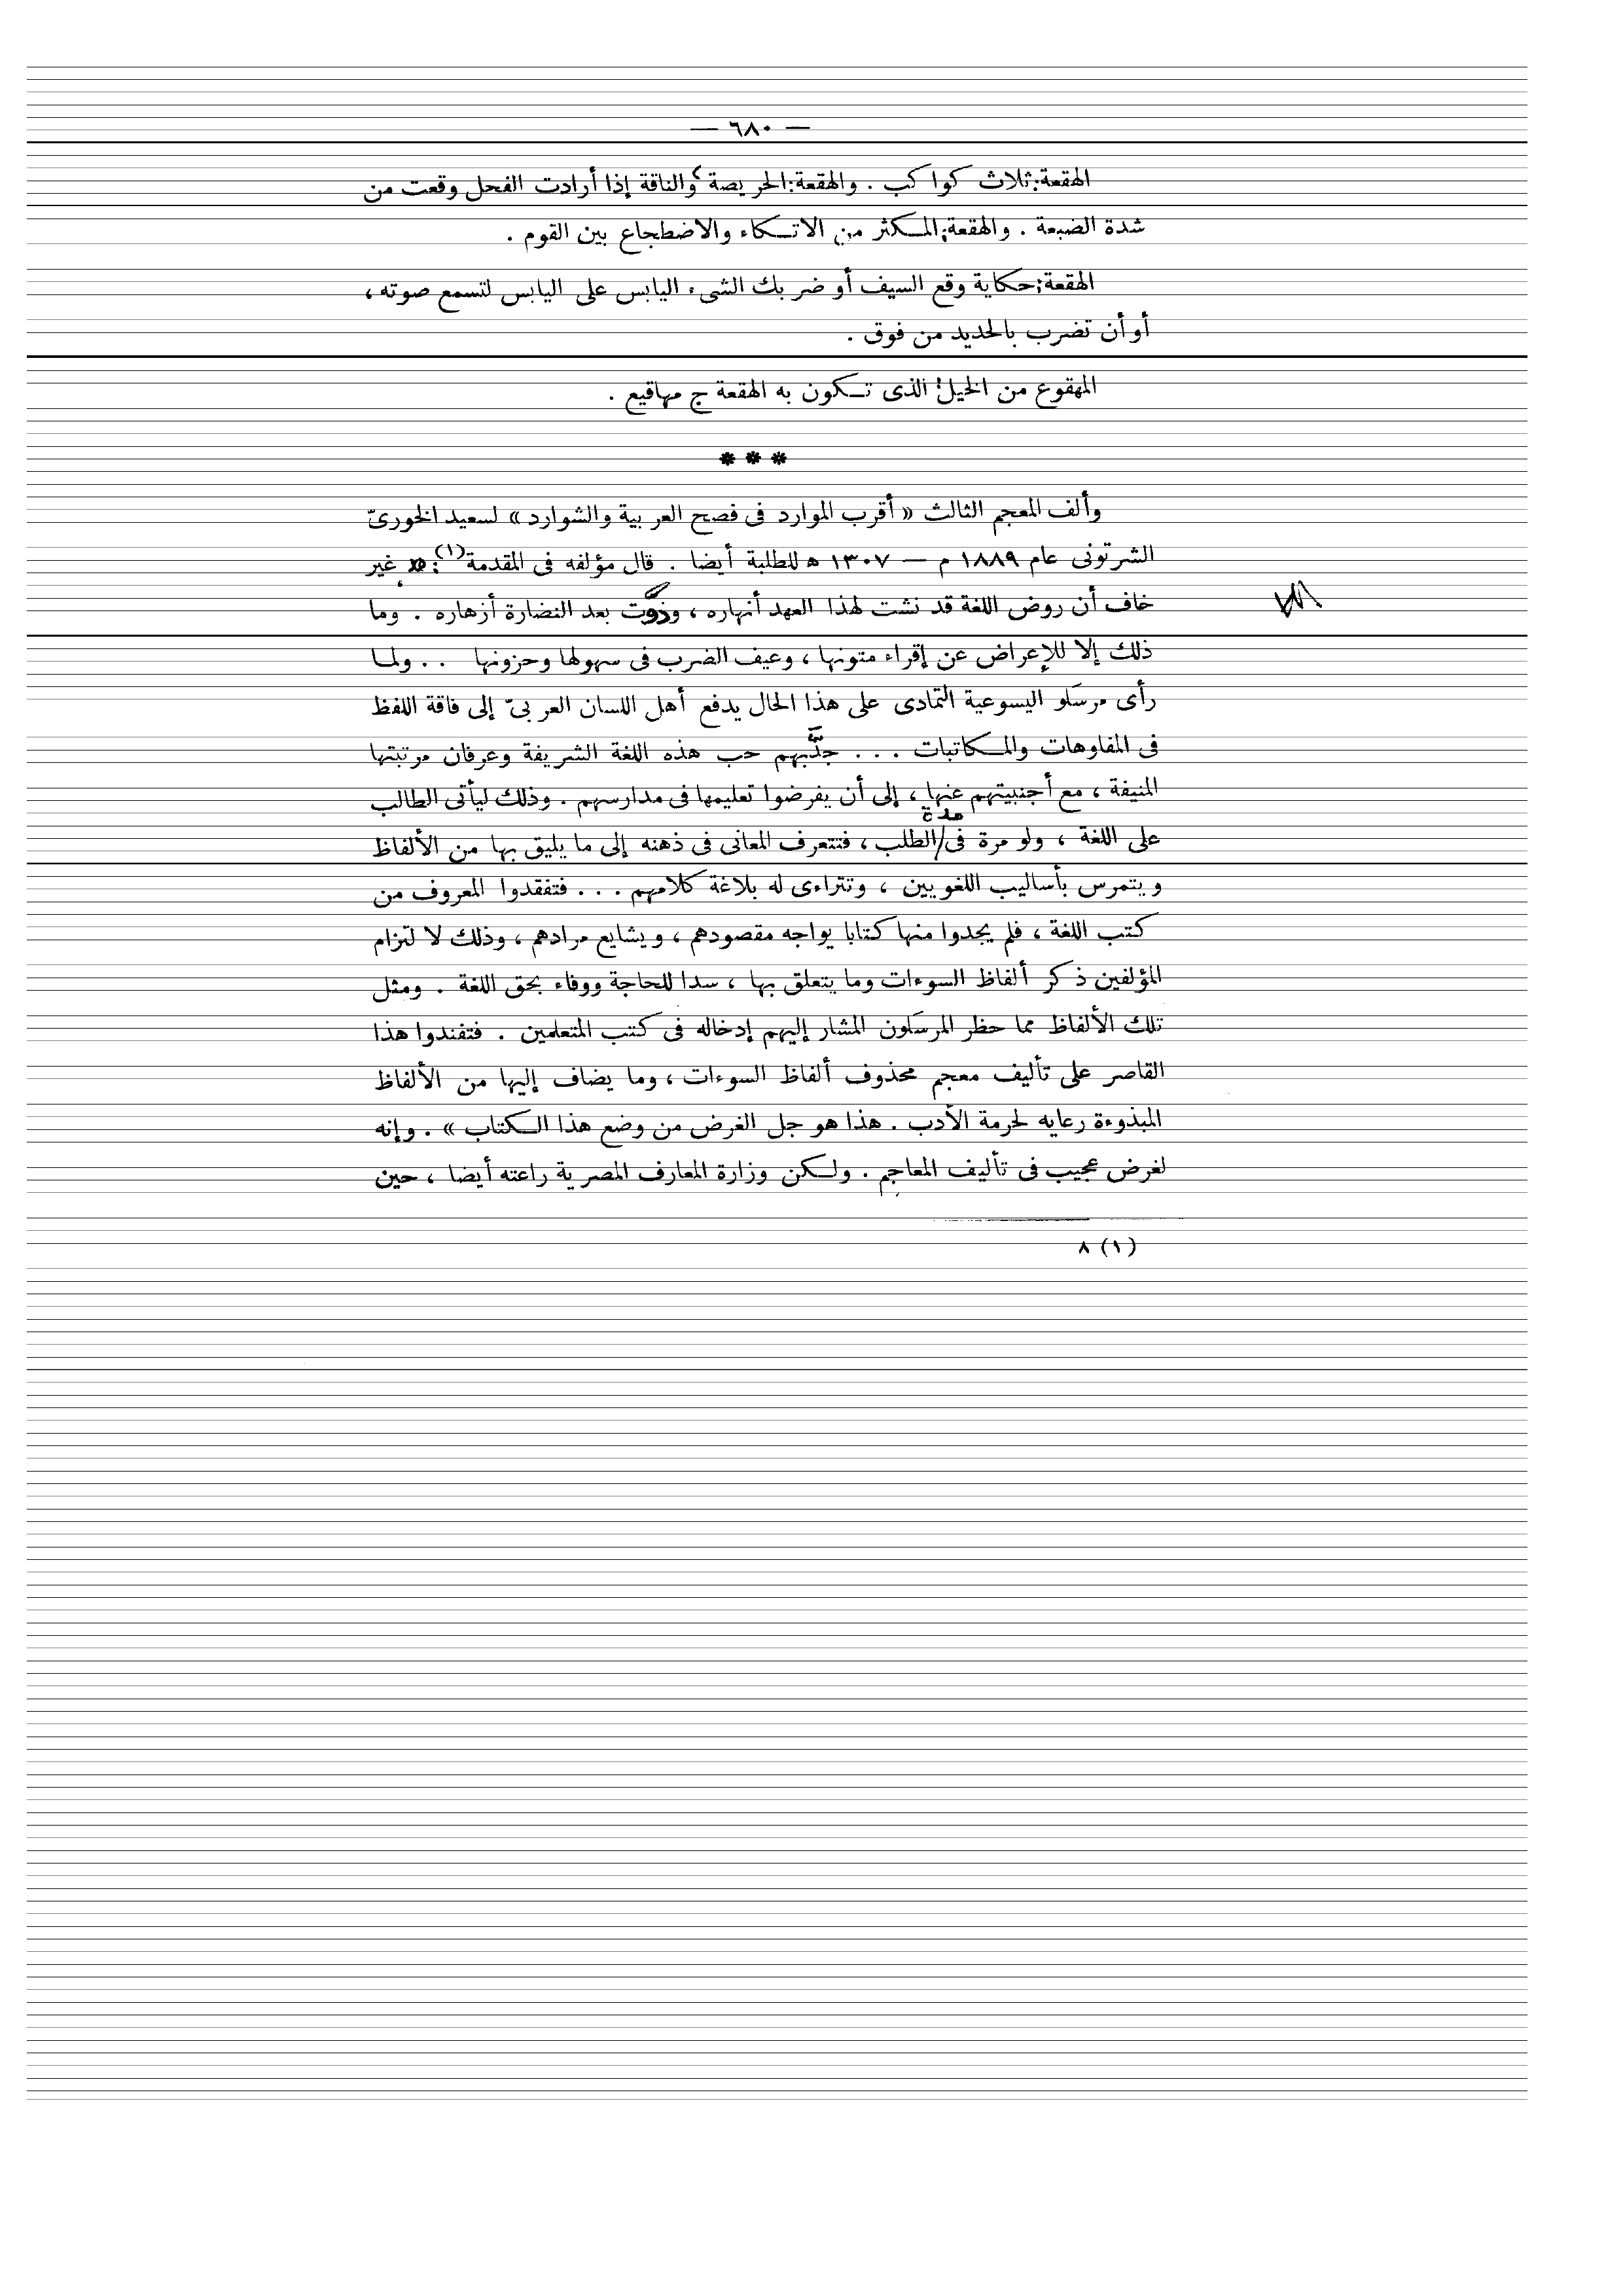 — ٦٨٠ —
الهقعة: ثلاث كواكب . والهقعة: الحريصة ، والناقة إذا أرادت الفحل وقعت من
شدة الضبعة . والهقعة: المكثر من الاتكاء والاضطجاع بين القوم .
الهقعة: حكاية وقع السيف أو ضربك الشىء اليابس على اليابس لتسمع صوته ،
أو أن تضرب بالحديد من فوق .
المهقوع من الخيل: الذى تكون به الهقعة ج مهاقيع .
* * *
وألف المعجم الثالث « أقرب الموارد فى فصح العربية والشوارد » لسعيد الخورىّ
الشرتونى عام ١٨٨٩ م — ١٣٠٧ ه للطلبة أيضا . قال مؤلفه فى المقدمة (١) : غير
خاف أن روض اللغة قد نشت لهذا العهد أنهاره ، وذوت بعد النضارة أزهاره . وما
ذلك إلا للإعراض عن إقراء متونها ، وعيف الضرب فى سهولها وحزونها . . ولما
رأى مرسَلو اليسوعية التمادى على هذا الحال يدفع أهل اللسان العربىّ إلى فاقة اللفظ
فى المفاوهات والمكاتبات . . . جذبهم حب هذه اللغة الشريفة وعرفان مرتبتها
المنيفة ، مع أجنبيتهم عنها ، إلى أن يفرضوا تعليمها فى مدارسهم . وذلك ليأتى الطالب
على اللغة ، ولو مرة فى مدة الطلب ، فتتعرف المعانى فى ذهنه إلى ما يليق بها من الألفاظ
ويتمرس بأساليب اللغويين ، وتتراءى له بلاغة كلامهم . . . فتفقدوا المعروف من
كتب اللغة ، فلم يجدوا منها كتابا يواجه مقصودهم ، ويشايع مرادهم ، وذلك لالتزام
المؤلفين ذكر ألفاظ السوءات وما يتعلق بها ، سدا للحاجة ووفاء بحق اللغة . ومثل
تلك الألفاظ مما حظر المرسَلون المشار إليهم إدخاله فى كتب المتعلمين . فتفندوا هذا
القاصر على تأليف معجم محذوف ألفاظ السوءات ، وما يضاف إليها من الألفاظ
المبذوءة رعايه لحرمة الأدب . هذا هو جل الغرض من وضع هذا الكتاب » . وإنه
لغرض عجيب فى تأليف المعاجم . ولكن وزارة المعارف المصرية راعته أيضا ، حين
(١) ٨